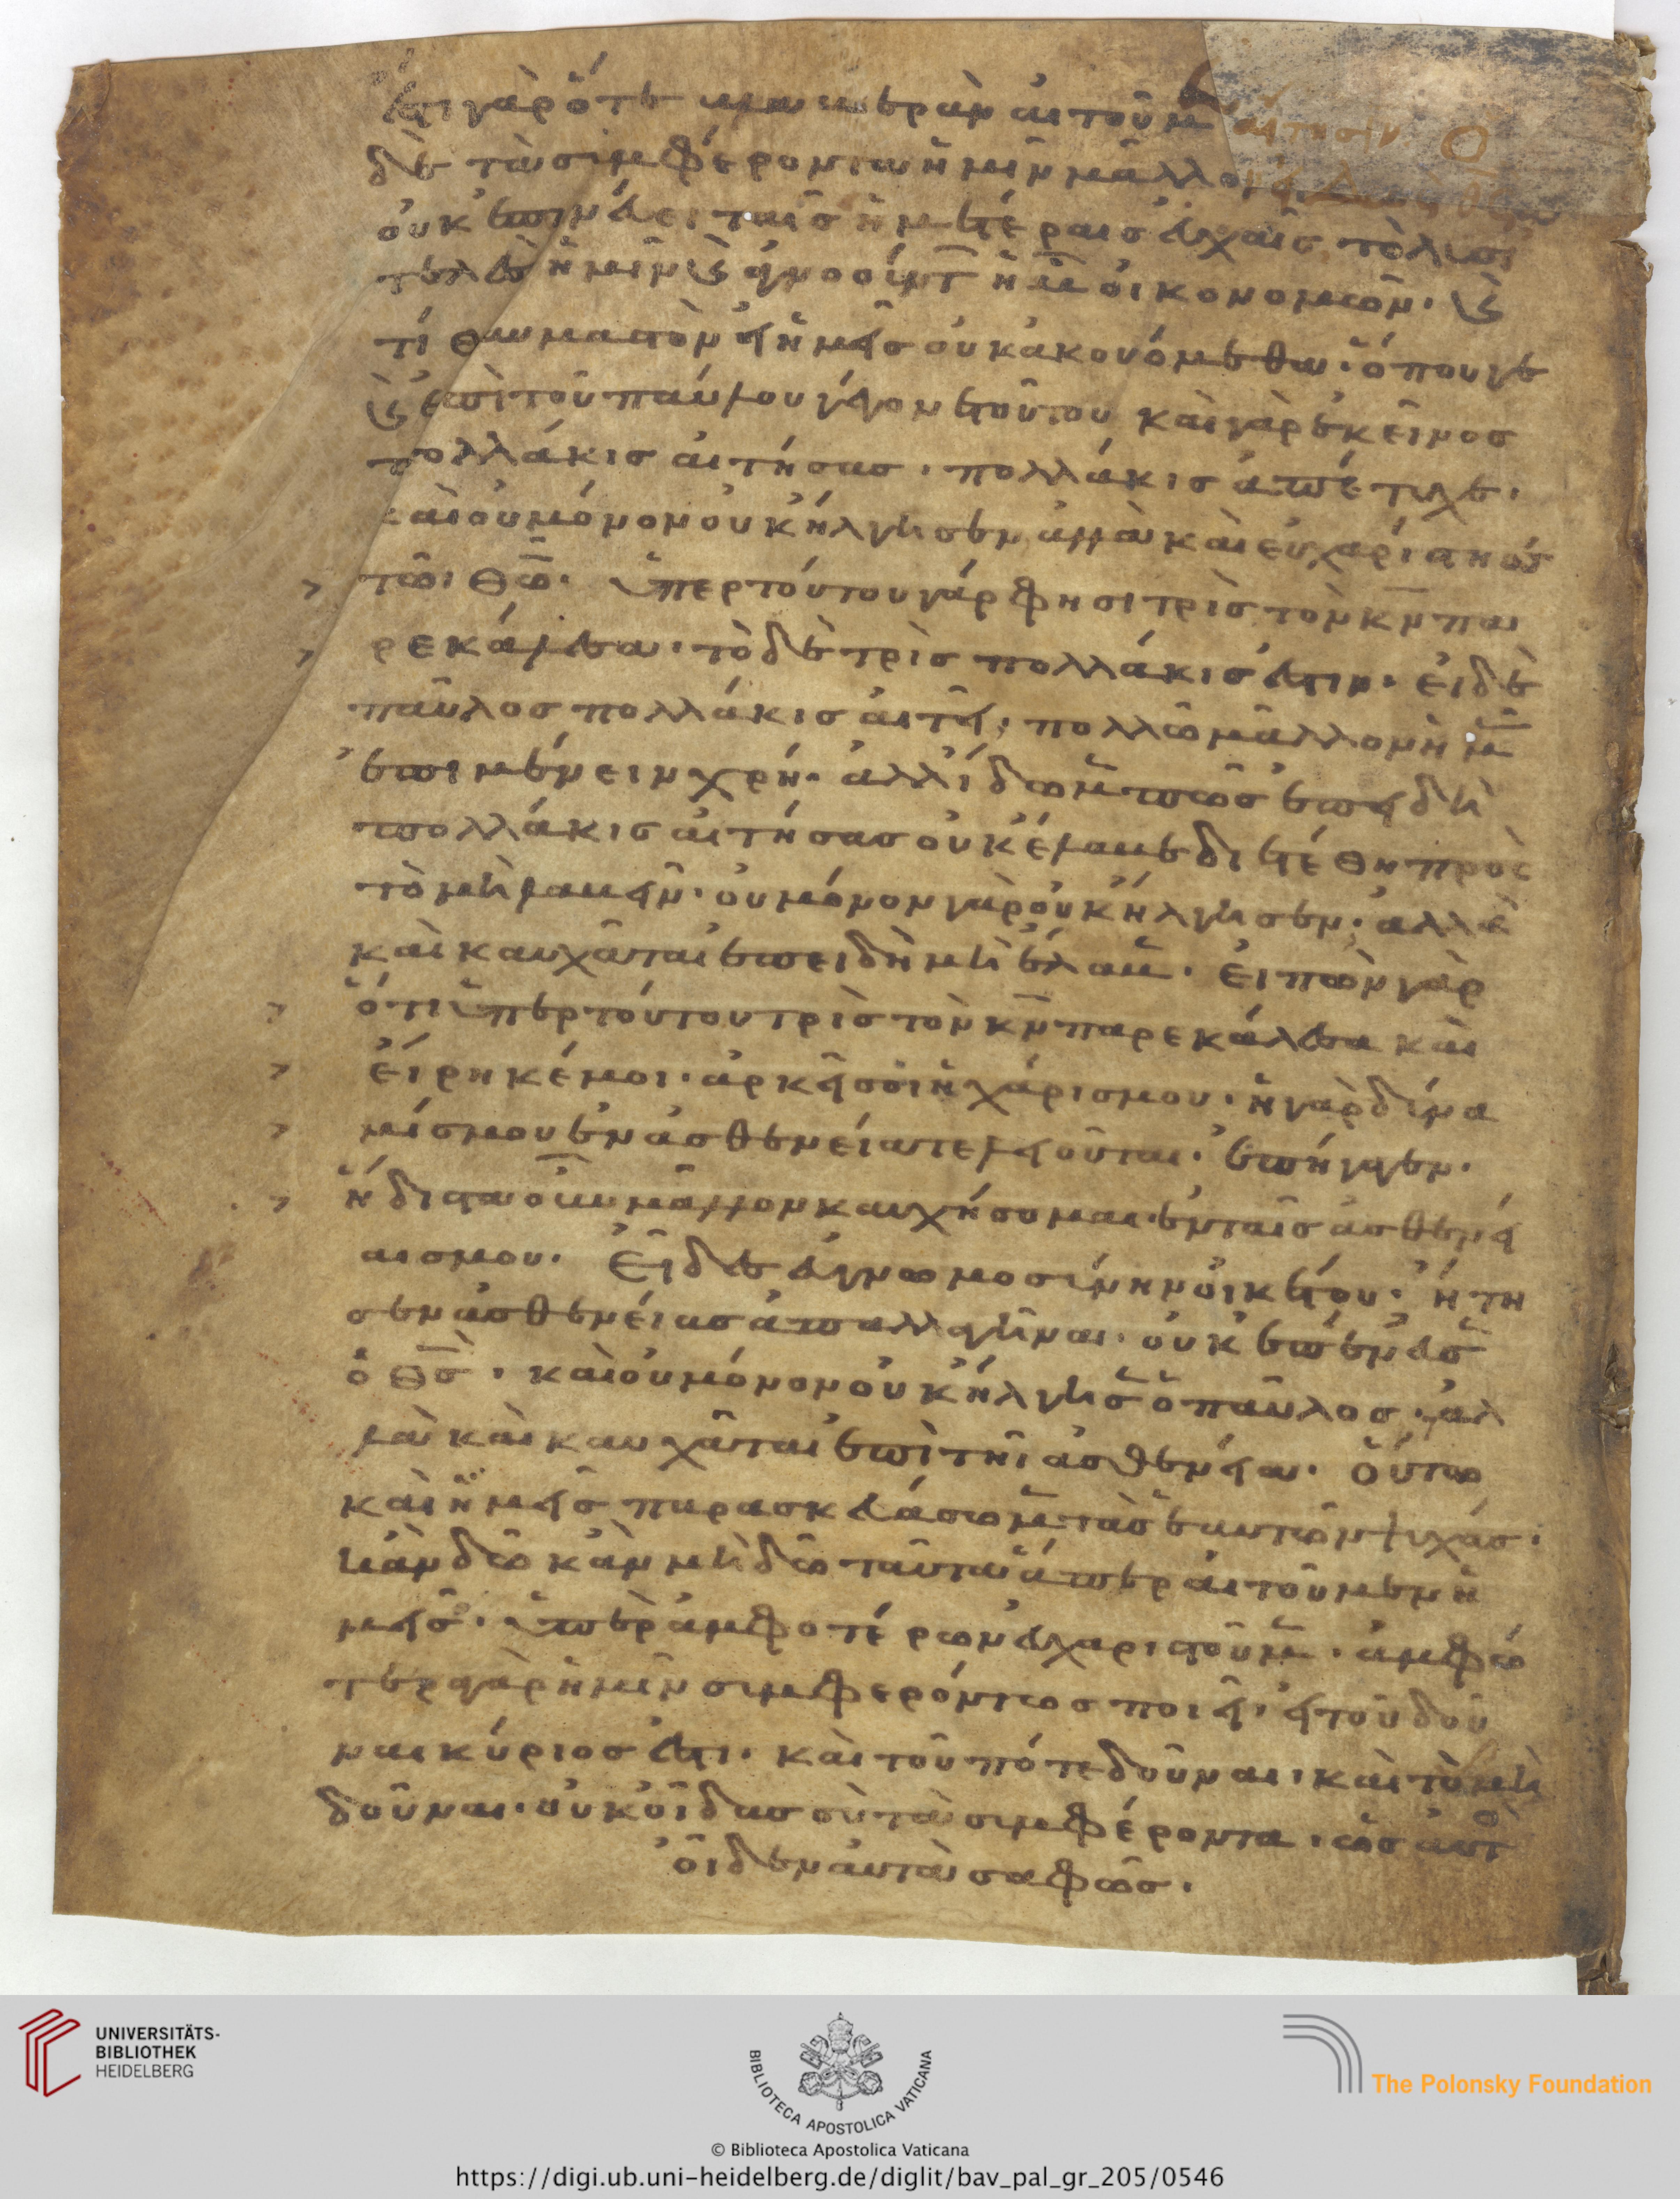 ἔστι γὰρ ὅτε ἀσύμφορον αἰτοῦμεν αἴτησιν. Ὁ
δὲ τὰ συμφέροντα ἡμῖν μᾶλλον
οὐκ ἐπινεύει ταῖς ἡμετέραις εὐχαῖς, τὸ λυσι
τελὲς ἡμῖν καὶ ἀγνοούντων ἡμῶν οἰκονομῶν. καὶ
τί θαυμαστὸν εἰ ἡμεῖς οὐκ ἀκουόμεθα. ὅπουγε
καὶ ἐπὶ τοῦ παύλου γέγονε τοῦτο καὶ γὰρ ἐκεῖνος
πολλάκις αἰτήσας. πολλάκις ἀπέτυχε.
καὶ οὐ μόνον οὐκ ἤλγησεν ἀλλὰ καὶ εὐχαρίστησε
τῶι θῶ. Ὑπερ τούτου γάρ φησι τρὶς τὸν κν πα
ρεκάλεσα. τὸ δὲ τρὶς πολλάκις ἐστιν. εἰ δὲ
παῦλος πολλάκις αἰτεῖ, πολλῶ μᾶλλον ἡμᾶς
ἐπιμένειν χρή. ἀλλ' ἴδωμεν πῶς ἐπειδὴ
πολλάκις αἰτήσας οὐκ ἔλαβε διετέθη πρὸς
τὸ μὴ λαβεῖν. οὐ μόνον γὰρ οὐκ ἤλγησεν. ἀλλὰ
καὶ καυχᾶται ἐπειδὴ μὴ ἔλαβεν. Εἰπὼν γὰρ
ὅτι ὑπερ τούτου τρὶς τὸν κν παρεκάλεσα καὶ
εἴρηκέ μοι. ἀρκεῖ σοι ἡ χάρις μου. ἡ γὰρ δύνα
μίς μου ἐν ἀσθενείᾳ τελειοῦται. ἐπήγαγεν.
ἥδιστα οὖν μᾶλλον καυχήσομαι ἐν ταῖς ἀσθενεί
αις μου. Εἶδες εὐγνωμοσύνην οἰκέτου. ἤτη
σεν ἀσθενείας ἀπαλλαγῆναι. οὐκ ἐπένευσεν
ὁ θς. καὶ οὐ μόνον οὐκ ἤλγησεν ὁ παῦλος. ἀλ
λὰ καὶ καυχᾶται ἐπὶ τῆι ἀσθενείᾳ. Οὕτω
καὶ ἡμεῖς παρασκευάσωμεν τὰς ἑαυτῶν ψυχάς.
κἀν δῶ κἀν μὴ δῶ ταῦτα ἅπερ αἰτοῦμεν ἡ
μεῖς. ὑπὲρ ἀμφοτέρων εὐχαριστοῦμεν. ἀμφό
τερα γὰρ ἡμῖν συμφερόντως ποιεῖ. εἰ τοῦ δοῦ
ναι κύριος ἐστι. καὶ τοῦ πότε δοῦναι, καὶ τὸ μὴ
δοῦναι. οὐκ οἶδας σὺ τὰ συμφέροντα, ὡς αὐτὸς
οἶδεν αὐτὰ σαφῶς.
UNIVERSITÄTS-
BIBLIOTHEK
HEIDELBERG
BIBLIOTECA APOSTOLICA VATICANA
The Polonsky Foundation
© Biblioteca Apostolica Vaticana
https://digi.ub.uni-heidelberg.de/diglit/bav_pal_gr_205/0546